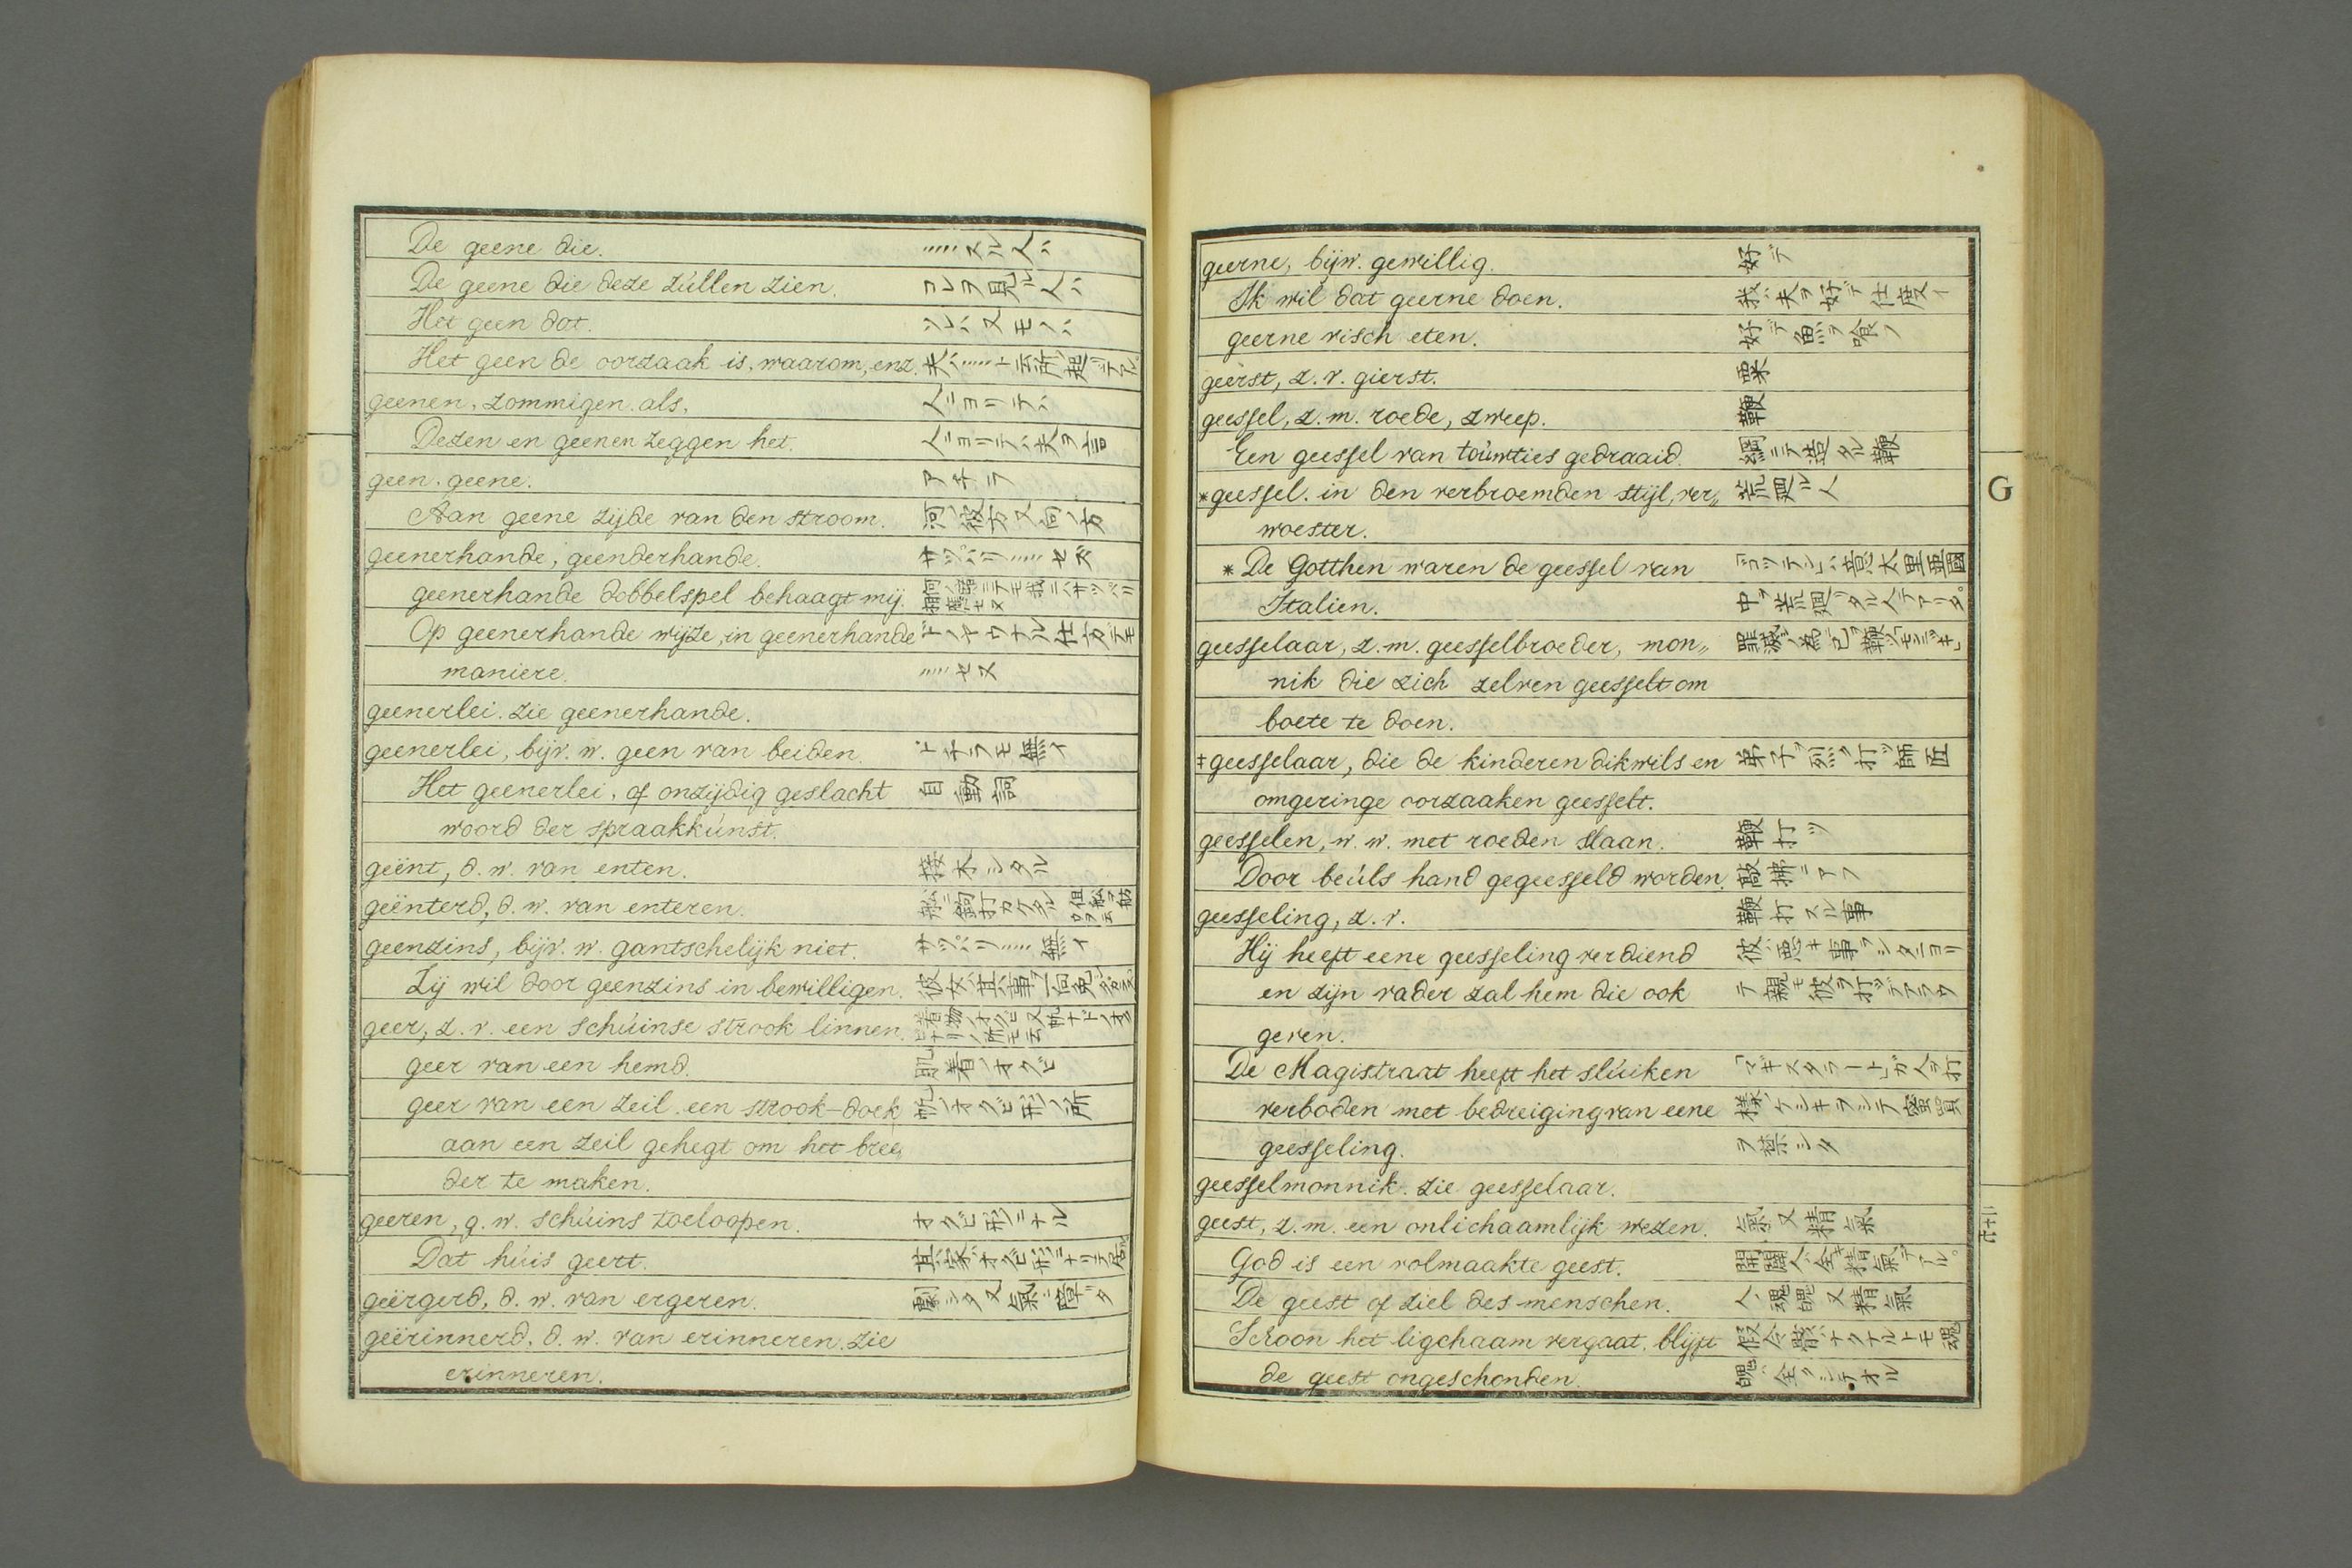 De geene die. ……スル人ハ
De geene die deze zúllen zien. コレヲ見ル人ハ
Het geen dat. ソレハ又モノハ
Het geen de oorzaak is, waarom, enz. 夫ハ……ト云所ノ起リデアル
geenen, zommigen, als, 人ニヨリテハ
Dezen en geenen zeggen het. 人ニヨリテハ夫ヲ言
geen. geene. アチラ
Aan geene zijde van den stroom. 河ノ彼方又向ノ方
geenerhande, geenderhande. サツパリ……セズ
geenerhande dobbelspel behaagt mij.
Op geenerhande wijze, in geenerhande ドノヤウナル仕方デモ
maniere. ……セヌ
geenerlei. zie geenerhande.
geenerlei, bijv. w. geen van beiden. ドチラモ無イ
Het geenerlei, of onzijdig geslacht 自動詞
woord der spraakkúnst.
geënt, d. w. van enten. 接木シタル
geënterd, d. w. van enteren. 船ニ鉤打カケタル
geenzins, bijv. w. gantschelijk niet. サツパリ……無イ
Zij wil door geenzins in bewilligen. 彼女ハ其事ヲ一向免サズ
geer, z. v. een schúinse strook linnen.
geer van een hemd. 肌着ノオクビ
geer van een zeil, een strook-doek 帆ノオクビ形ノ所
aan een zeil gehegt om het bree„
der te maken.
geeren, g. w. schúins toeloopen. オクビ形ニナル
Dat húis geert. 其家ハオクビ形ニナリテ居ル
geërgerd, d. w. van ergeren. 劇シタ又氣ニ障ツタ
geërinnerd, d. w. van erinneren. zie
erinneren.
geerne, bijw. gewillig. 好デ
Ik wil dat geerne doen. 我ハ夫ヲ好デ仕度イ
geerne visch eten. 好デ魚ヲ喰フ
geerst, z. v. gierst. 粟
geessel, z. m. roede, zweep. 鞭
Een geessel van toúwties gedraaid. 綱ニテ造タル鞭
*geessel. in den verbroemden stijl, ver„ 荒廻ル人
woester.
* De Gotthen waren de geessel van 「ゴツテン」ハ意太里亜國
Italien. 中ヲ荒廻リタル人デアリタ。
geesselaar, z. m. geesselbroeder, mon„ 罪滅ノ為ニ己ヲ鞭ツ「モンニキ」
nik die zich zelven geesselt om
boete te doen.
‡geesselaar, die de kinderen dikwils en 弟子ヲ烈ク打ツ師匠
omgeringe oorzaaken geesselt.
geesselen, w. w. met roeden slaan. 鞭打ツ
Door beúls hand gegeesseld worden. 敲拂ニアフ
geesseling, z. v. 鞭打スル事
Hij heeft eene geesseling verdiend 彼ハ悪キ事ヲシタニヨリ
en zijn vader zal hem die ook テ親モ彼ヲ打ツデアラウ
geven.
De Magistraat heeft het slúiken 「マギスタラート」ガ人ヲ打
verboden met bedreiging van eene 様ノケシキヲシテ密買
geesseling. ヲ禁シタ
geesselmonnik. zie geesselaar.
geest, z. m. een onlichaamlijk wezen. 氣又精氣
God is een volmaakte geest. 開闢人ハ全キ精氣デアル。
De geest of ziel des menschen. 人ノ魂魄又精氣
Schoon het ligchaam vergaat, blijft 假令骸ハナクナルトモ魂
de geest ongeschonden. 魄ハ全クシテオル
G